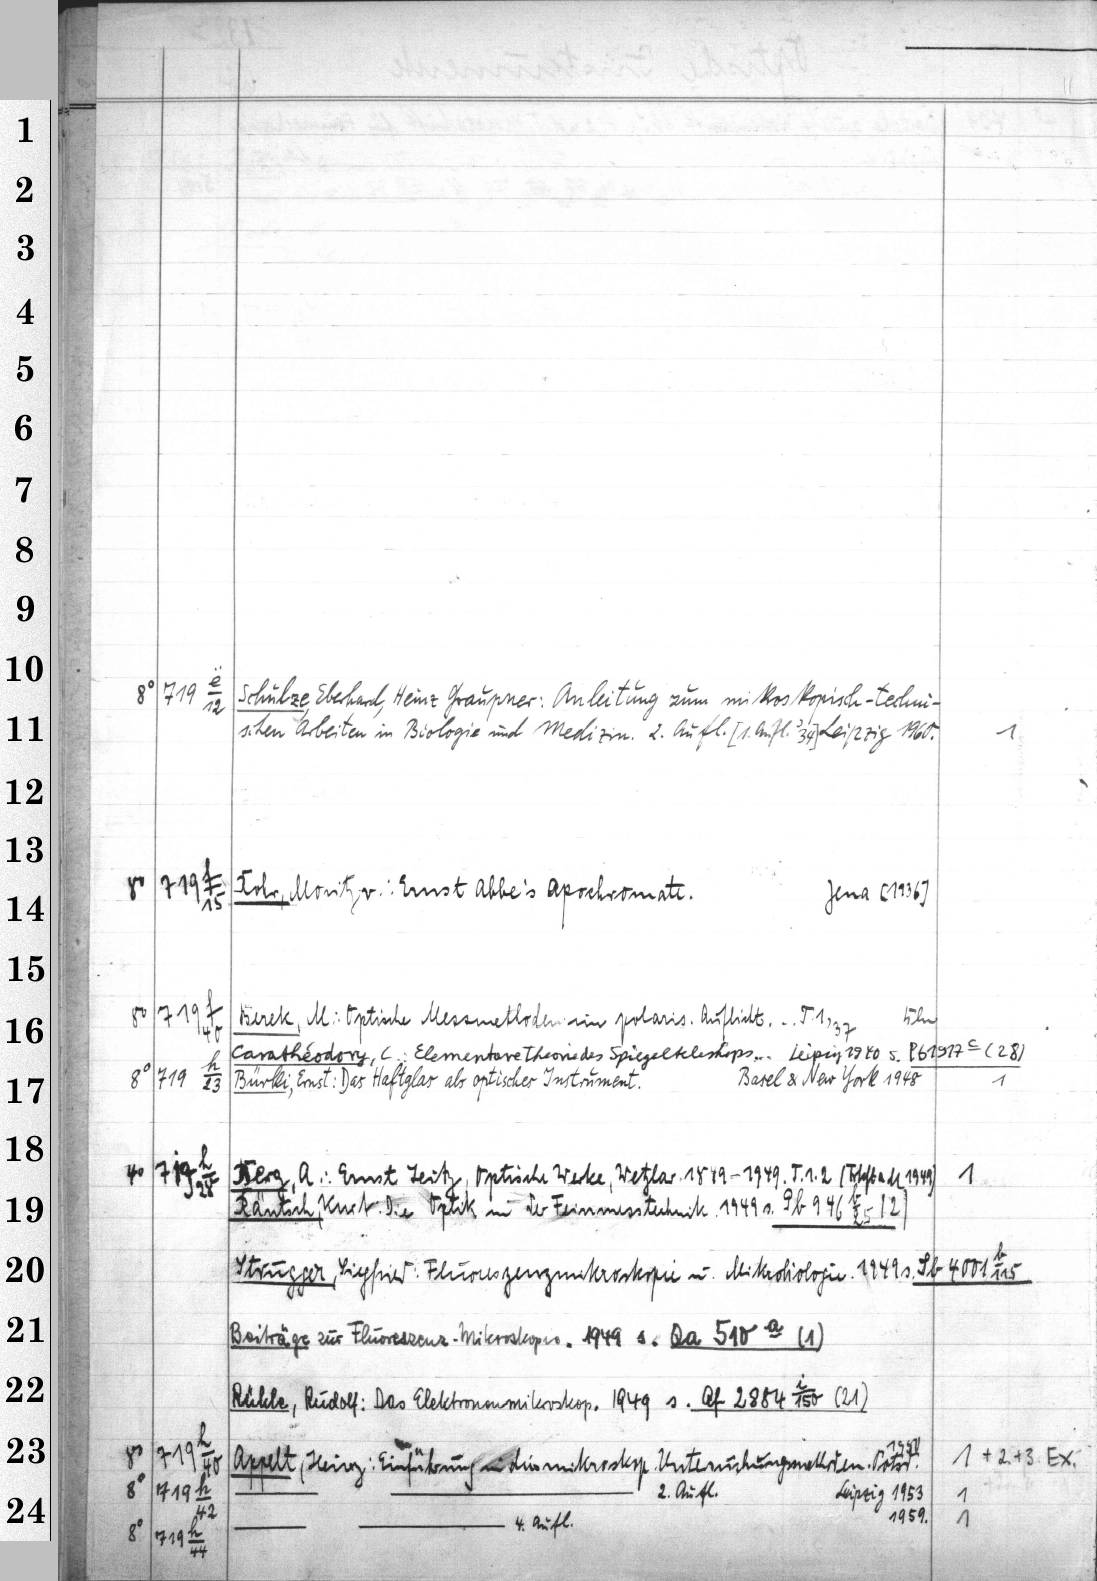 1
2
3
4
5
6
7
8
9
10
8° 719 ë/12 Schulze, Eberhard, Heinz Graupner: Anleitung zum mikroskopisch-techni-
11
schen Arbeiten in Biologie und Medizin. 2. Aufl. [1. Aufl. 34] Leipzig 1960. 1
12
13
14
8° 719 f/15 Rohr, Moritz v.: Ernst Abbe's Apochromate. Jena [1936]
15
16
8° 719 f/40 Berek, M.: Optische Messmethoden im polaris. Auflicht. .. T. 1, 37
Carathéodory, C.: Elementare Theorie des Spiegelteleskops... Leipzig 1940 s. Pb 1917 c (28)
17
8° 719 h/23 Bürki, Ernst: Das Haftglas als optischer Instrument. Basel & New York 1948 1
18
4° 719 h/28 Berg, A.: Ernst Leitz, Optische Werke, Wetzlar. 1849-1949. T. 1. 2 1949) 1
19
Räntsch, Kurt. Die Optik in der Feinmesstechnik. 1949 s. Pb 946 (2)
20
Strugger, Siegfried: Fluoreszenzmikroskopie u. Mikrobiologie. 1949 s. Sb 4001 h/115
21
Beiträge zur Fluoreszenz-Mikroskopie. 1949 s. Qa 510 a (1)
22
Rühle, Rudolf: Das Elektronenmikroskop. 1949 s. Qf 2884 i/150 (21)
23
8° 719 h/40 Appelt, Heinz: Einführung in die mikroskop. Untersuchungsmethoden. Potsd. 1 + 2. + 3. Ex.
8° 719 h/42 2. Aufl. Leipzig 1953 1
24
8° 719 h/44 4. Aufl. 1959. 1